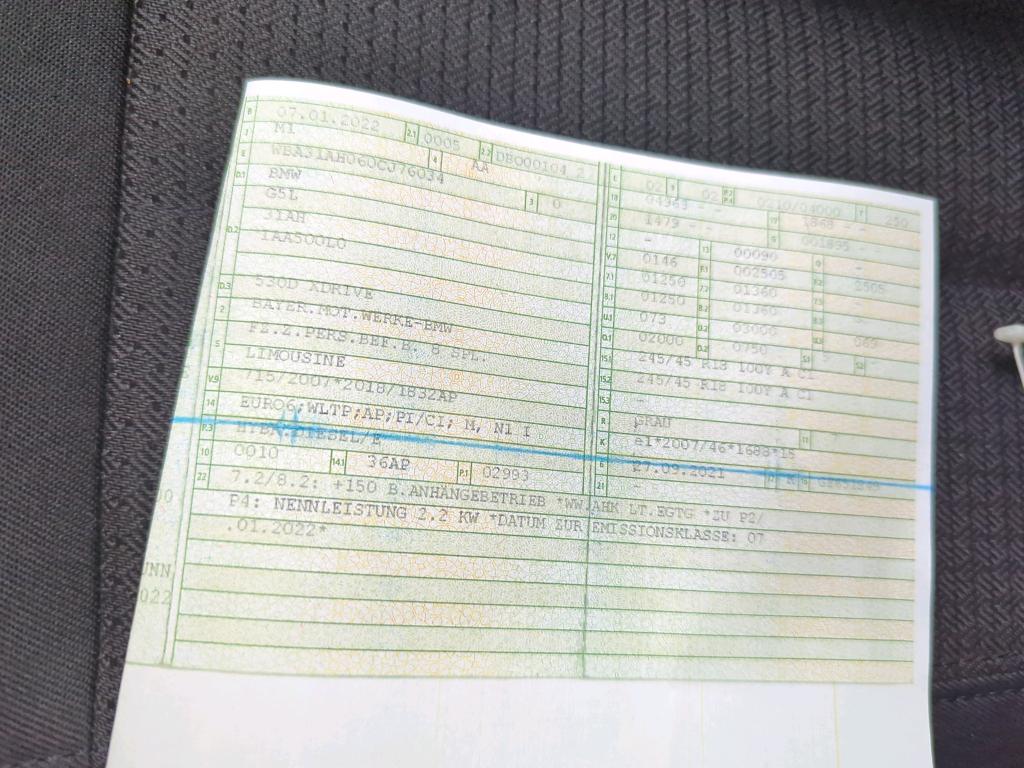 B 07.01.2022 2.1 0005 2.2 DB000104 2
J M1 4 AA
E WBA31AH060CJ76034 3 0
D.1 BMW
G5L
D.2 31AH
1AA500L0
D.3 530D XDRIVE
2 BAYER.MOT.WERKE-BMW
5 FZ.Z.PERS.BEF.B. 8 SPL.
LIMOUSINE
V.9 715/2007*2018/1832AP
14 EURO6;WLTP;AP;PI/CI; M, N1 I
P.3 HYBR.DIESEL/E
10 0010 14.1 36AP P.1 02993
22 7.2/8.2: +150 B.ANHÄNGEBETRIEB *WW.AHK LT.EGTG *ZU P2/
P4: NENNLEISTUNG 2.2 KW *DATUM ZUR EMISSIONSKLASSE: 07
.01.2022*
02 9 02 P.2 P.4 0210/04000 T 250
18 04963 - - 19 1868 - -
20 1479 - - G 001895 -
12 - 13 00090 Q -
V.7 0146 F.1 002505 F.2 2505
7.1 01250 7.2 01360 7.3 -
8.1 01250 8.2 01360 8.3 -
U.1 073 U.2 03000 U.3 069
O.1 02000 O.2 0750 S.1 S.2 -
15.1 245/45 R18 100Y A C1
15.2 245/45 R18 100Y A C1
15.3 -
R GRAU 11
K e1*2007/46*1688*15
6 27.09.2021 17 K 16
21 -
NN
022